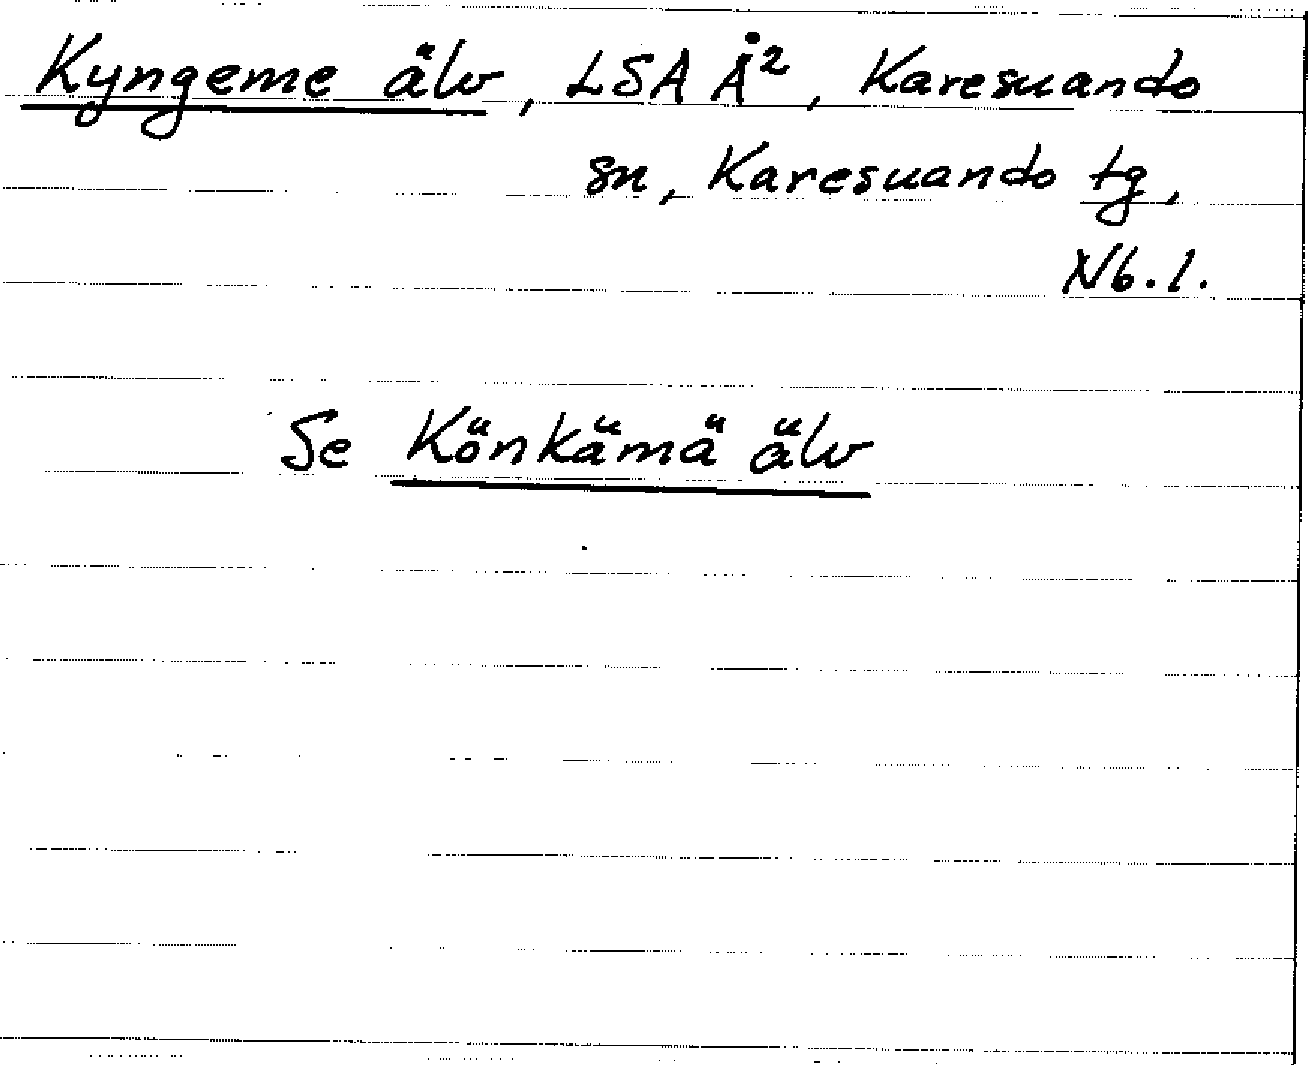 Kyngeme älv, LSA Å², Karesuando
sn, Karesuando tg,
Nb.l.
Se Könkämä älv